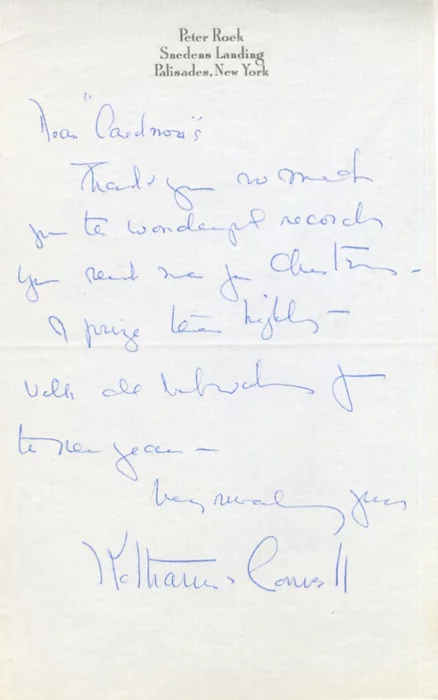 Peter Rock
Snedens Landing
Palisades, New York
Dear "Caedmon's
Thank you so much
for the wonderful records
you sent me for Christmas -
I prize them highly -
With all best wishes for
the new year -
Very sincerely yours
Katharine Cornell